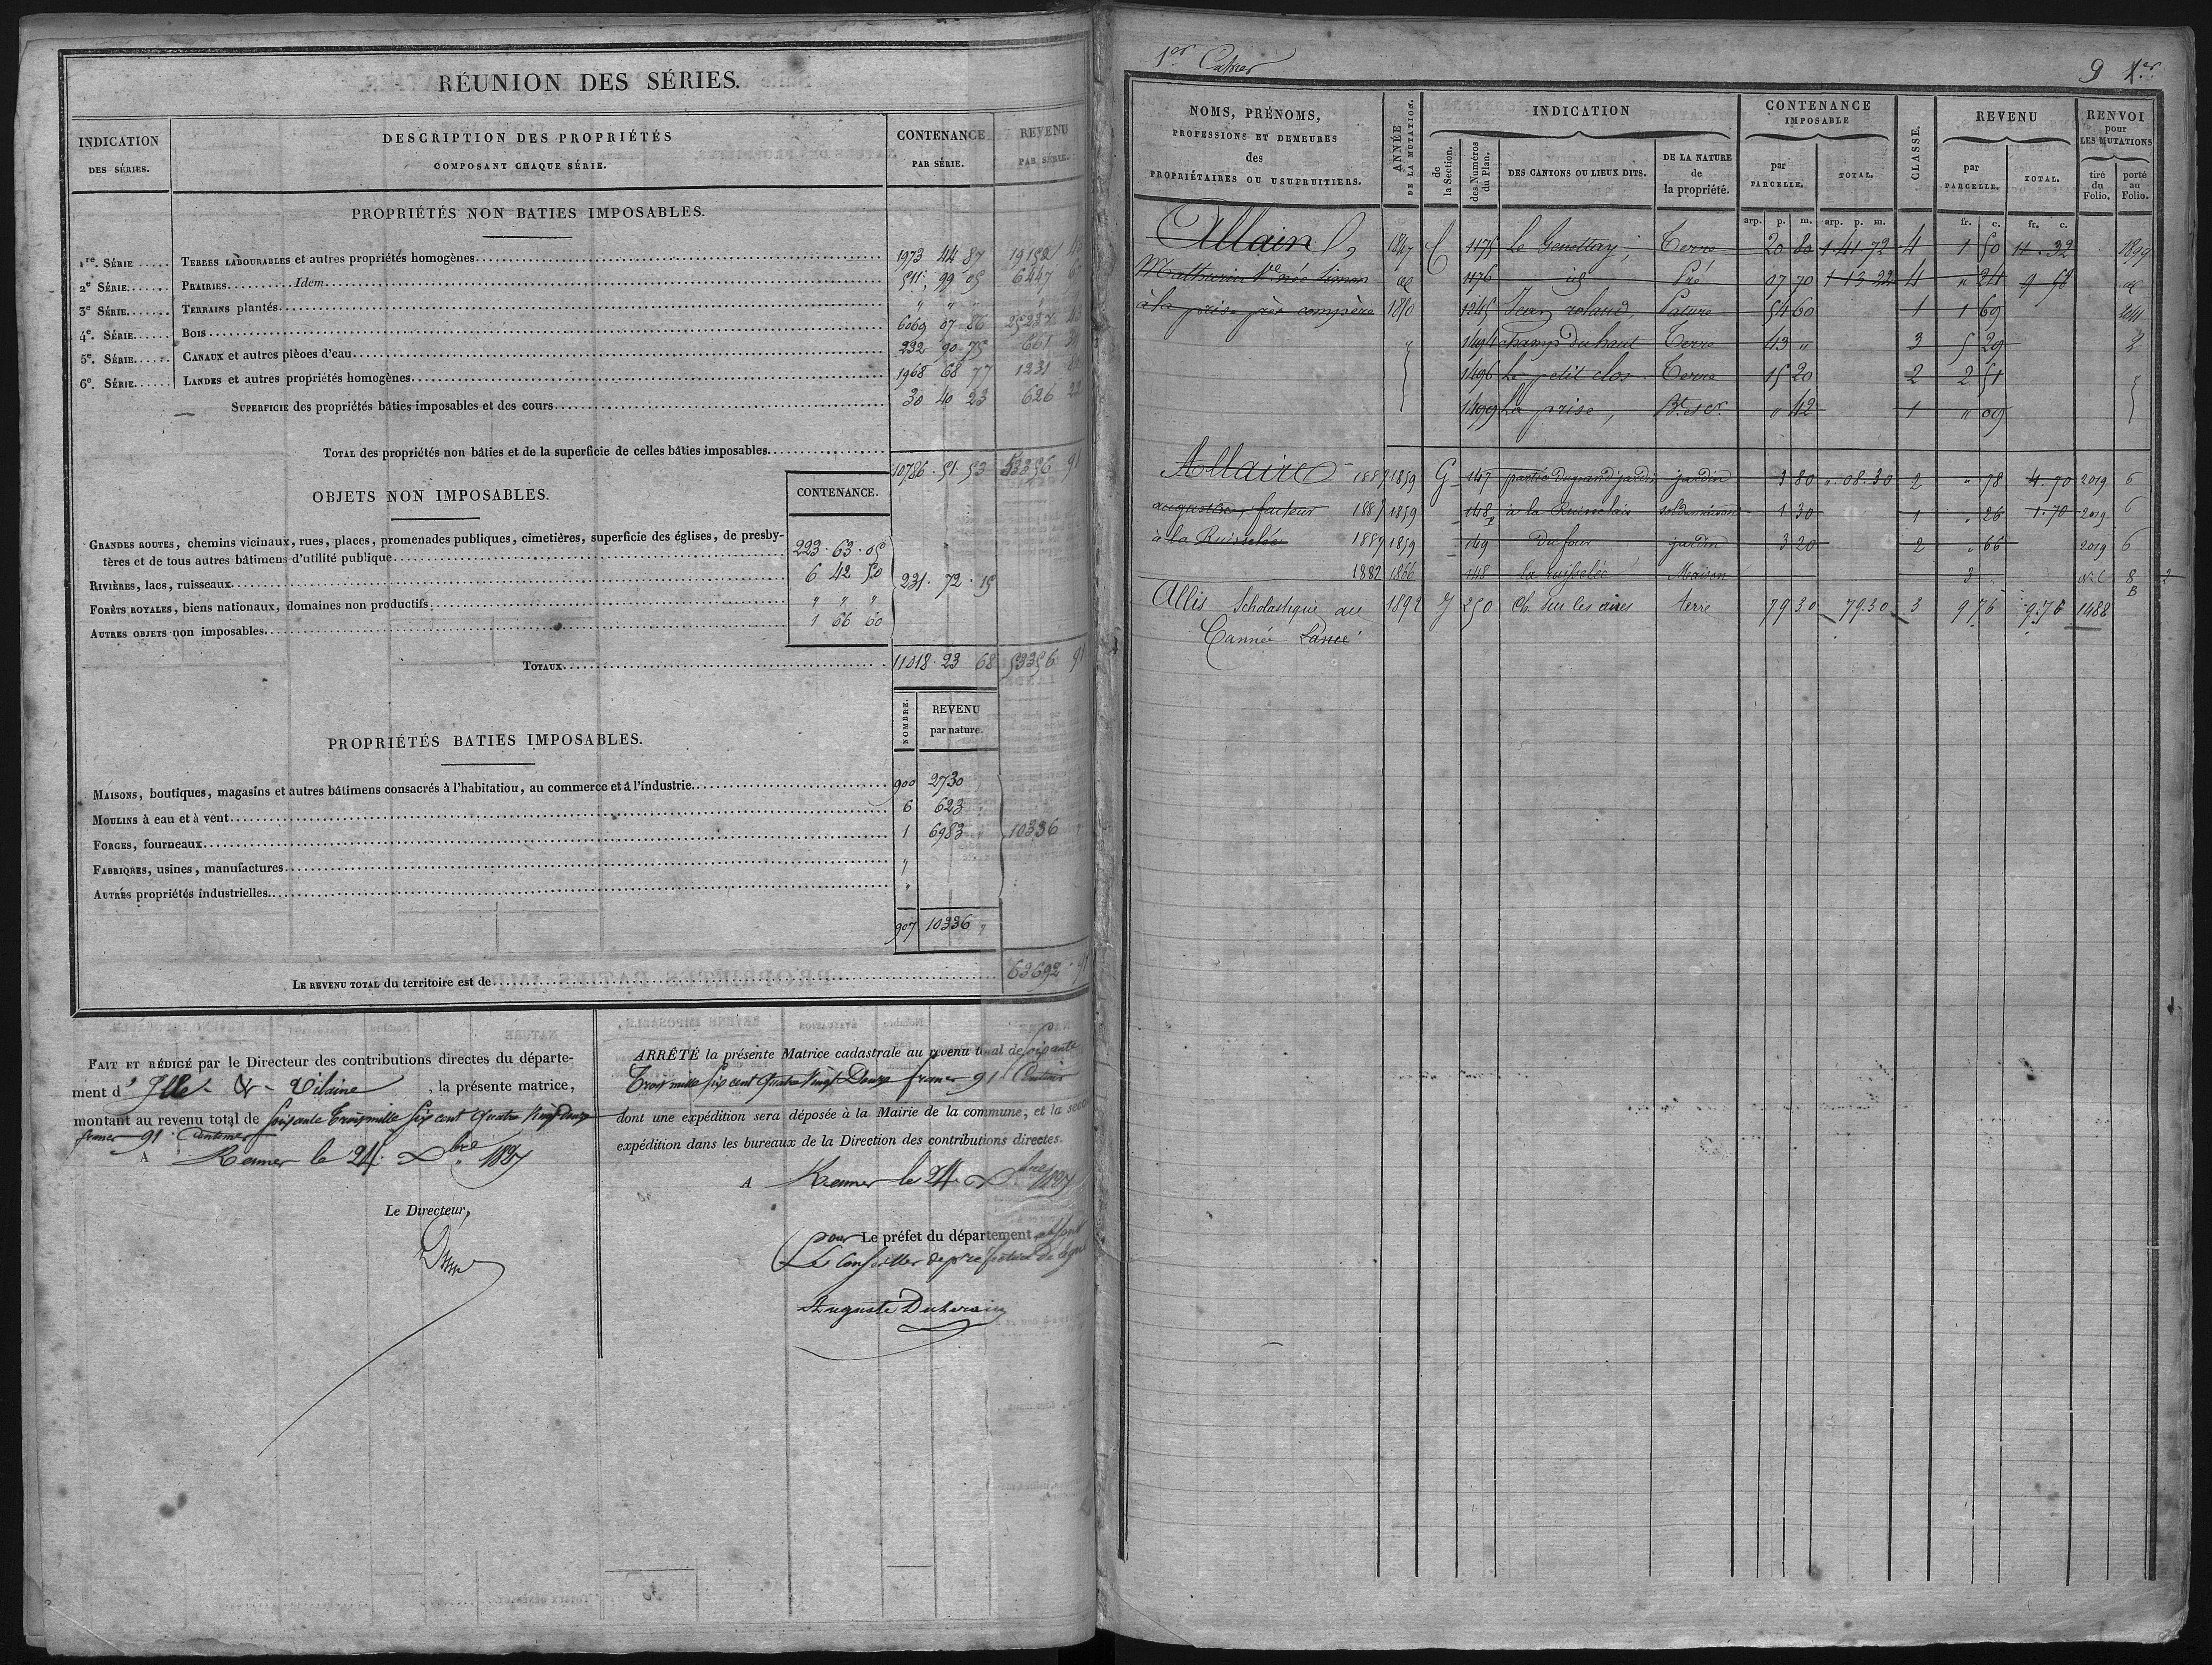 RÉUNION DES SÉRIES.
INDICATION DES SÉRIES.
DESCRIPTION DES PROPRIÉTÉS COMPOSANT CHAQUE SÉRIE.
CONTENANCE PAR SÉRIE.
REVENU PAR SÉRIE.
PROPRIÉTÉS NON BATIES IMPOSABLES.
1re. SÉRIE ..... TERRES LABOURABLES et autres propriétés homogènes 1973 44 87 19152
2e SÉRIE...... PRAIRIES.......... Idem 511 99 05 6447
3e SÉRIE...... TERRAINS plantés " "
4e. SÉRIE..... BOIS 6069 07 86
5e. SÉRIE..... CANAUX et autres pièces d'eau 232 90 75 661
6e. SÉRIE..... LANDES et autres propriétés homogènes 1968 68 77 1231
SUPERFICIE des propriétés bâties imposables et des cours 30 40 23 626 22
TOTAL des propriétés non bâties et de la superficie de celles bâties imposables 10786 . 51 . 53 53356 91
OBJETS NON IMPOSABLES.
CONTENANCE.
GRANDES ROUTES, chemins vicinaux, rues, places, promenades publiques, cimetières, superficie des églises, de presby-
tères et de tous autres bâtimens d'utilité publique 223 . 63 . 05
RIVIÈRES, lacs, ruisseaux 6 42 50 231 . 72 . 15
FORÊTS ROYALES, biens nationaux, domaines non productifs " " "
AUTRES OBJETS non imposables 1 66 60
TOTAUX 11018 . 23 68 53356 91
NOMBRE.
REVENU par nature.
PROPRIÉTÉS BATIES IMPOSABLES.
MAISONS, boutiques, magasins et autres bâtimens consacrés à l'habitation, au commerce et à l'industrie 900 2730
MOULINS à eau et à vent 6 623
FORGES, fourneaux 1 6983 10336
FABRIQUES, usines, manufactures "
AUTRES propriétés industrielles "
907 10336 "
LE REVENU TOTAL du territoire est de 63692 . 91
FAIT ET RÉDIGÉ par le Directeur des contributions directes du départe-
ment d' Ille & Vilaine, la présente matrice,
montant au revenu total de soixante trois mille six cent quatre vingt douze
francs 91 centimes
A Rennes le 24 Xbre 1837
Le Directeur,
ARRÊTÉ la présente Matrice cadastrale au revenu total de soixante
trois mille six cent quatre vingt Douze francs 91 Centimes
dont une expédition sera déposée à la Mairie de la commune, et la seco
expédition dans les bureaux de la Direction des contributions directes.
A Rennes le 24 Xbre 1837
Pour Le préfet du département absent
Le Conseiller de préfecture
Auguste
1er Cahier
9 1er
NOMS, PRÉNOMS, PROFESSIONS ET DEMEURES des PROPRIÉTAIRES OU USUFRUITIERS.
ANNÉE DE LA MUTATION.
INDICATION
de la Section.
des Numéros du Plan.
DES CANTONS OU LIEUX DITS.
DE LA NATURE de la propriété.
CONTENANCE IMPOSABLE
par PARCELLE.
TOTAL.
CLASSE.
REVENU
par PARCELLE.
TOTAL.
RENVOI pour LES MUTATIONS
tiré du Folio.
porté au Folio.
arp. p. m. arp. p. m. fr. c. fr. c.
Allain 1847 C 1175 Le Genettay, Terre 20 80 1 41 72 4 1 50 11 . 32 1899
Mathurin Ve née Simon 1176 id Pré 07 70 1 13 22 4 " 24 9 58
à la prise près compère 1850 1245 Jean roland, Pature 54 60 1 1 69
1494 champ du haut Terre 43 " 3 5 29
1496 Le petit clos Terre 15 20 2 2 51
1499 La prise, " 42 1 " 09
Allaire 1887 1859 G 147 jardin 3 80 ". 08. 30 2 " 78 4. 70 2019 6
auguste, facteur 1887 1859 148p 1 30 1 " 26 1. 70 2019 6
à la Ruisselée 1887 1859 149 Du four jardin 3 20 2 " 66 2019 6
1882 1866 148 la ruisselée Maison 3 8 2
Allis Scholastique au 1892 J 250 Ch. sur les aires terre 79 30 79.30 3 9 76 9.76 1488 B
Tannée Lancé